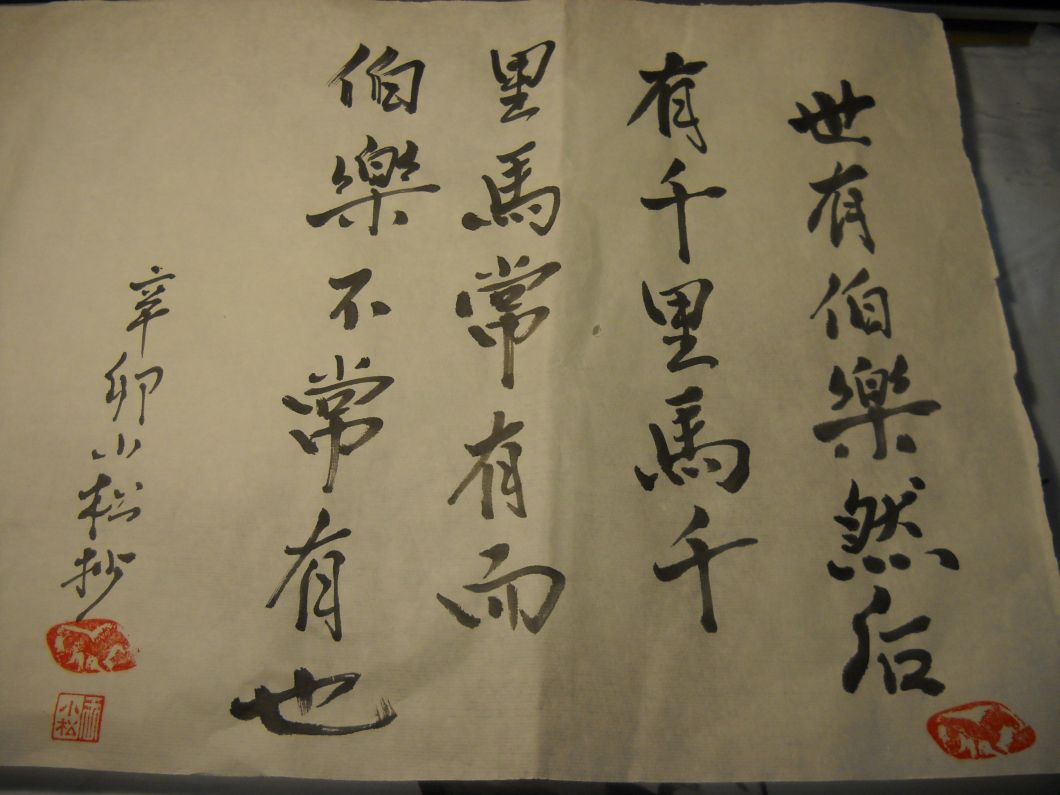 世有伯樂然后
有千里馬千
里馬常有而
伯樂不常有也
辛卯小松抄
小松